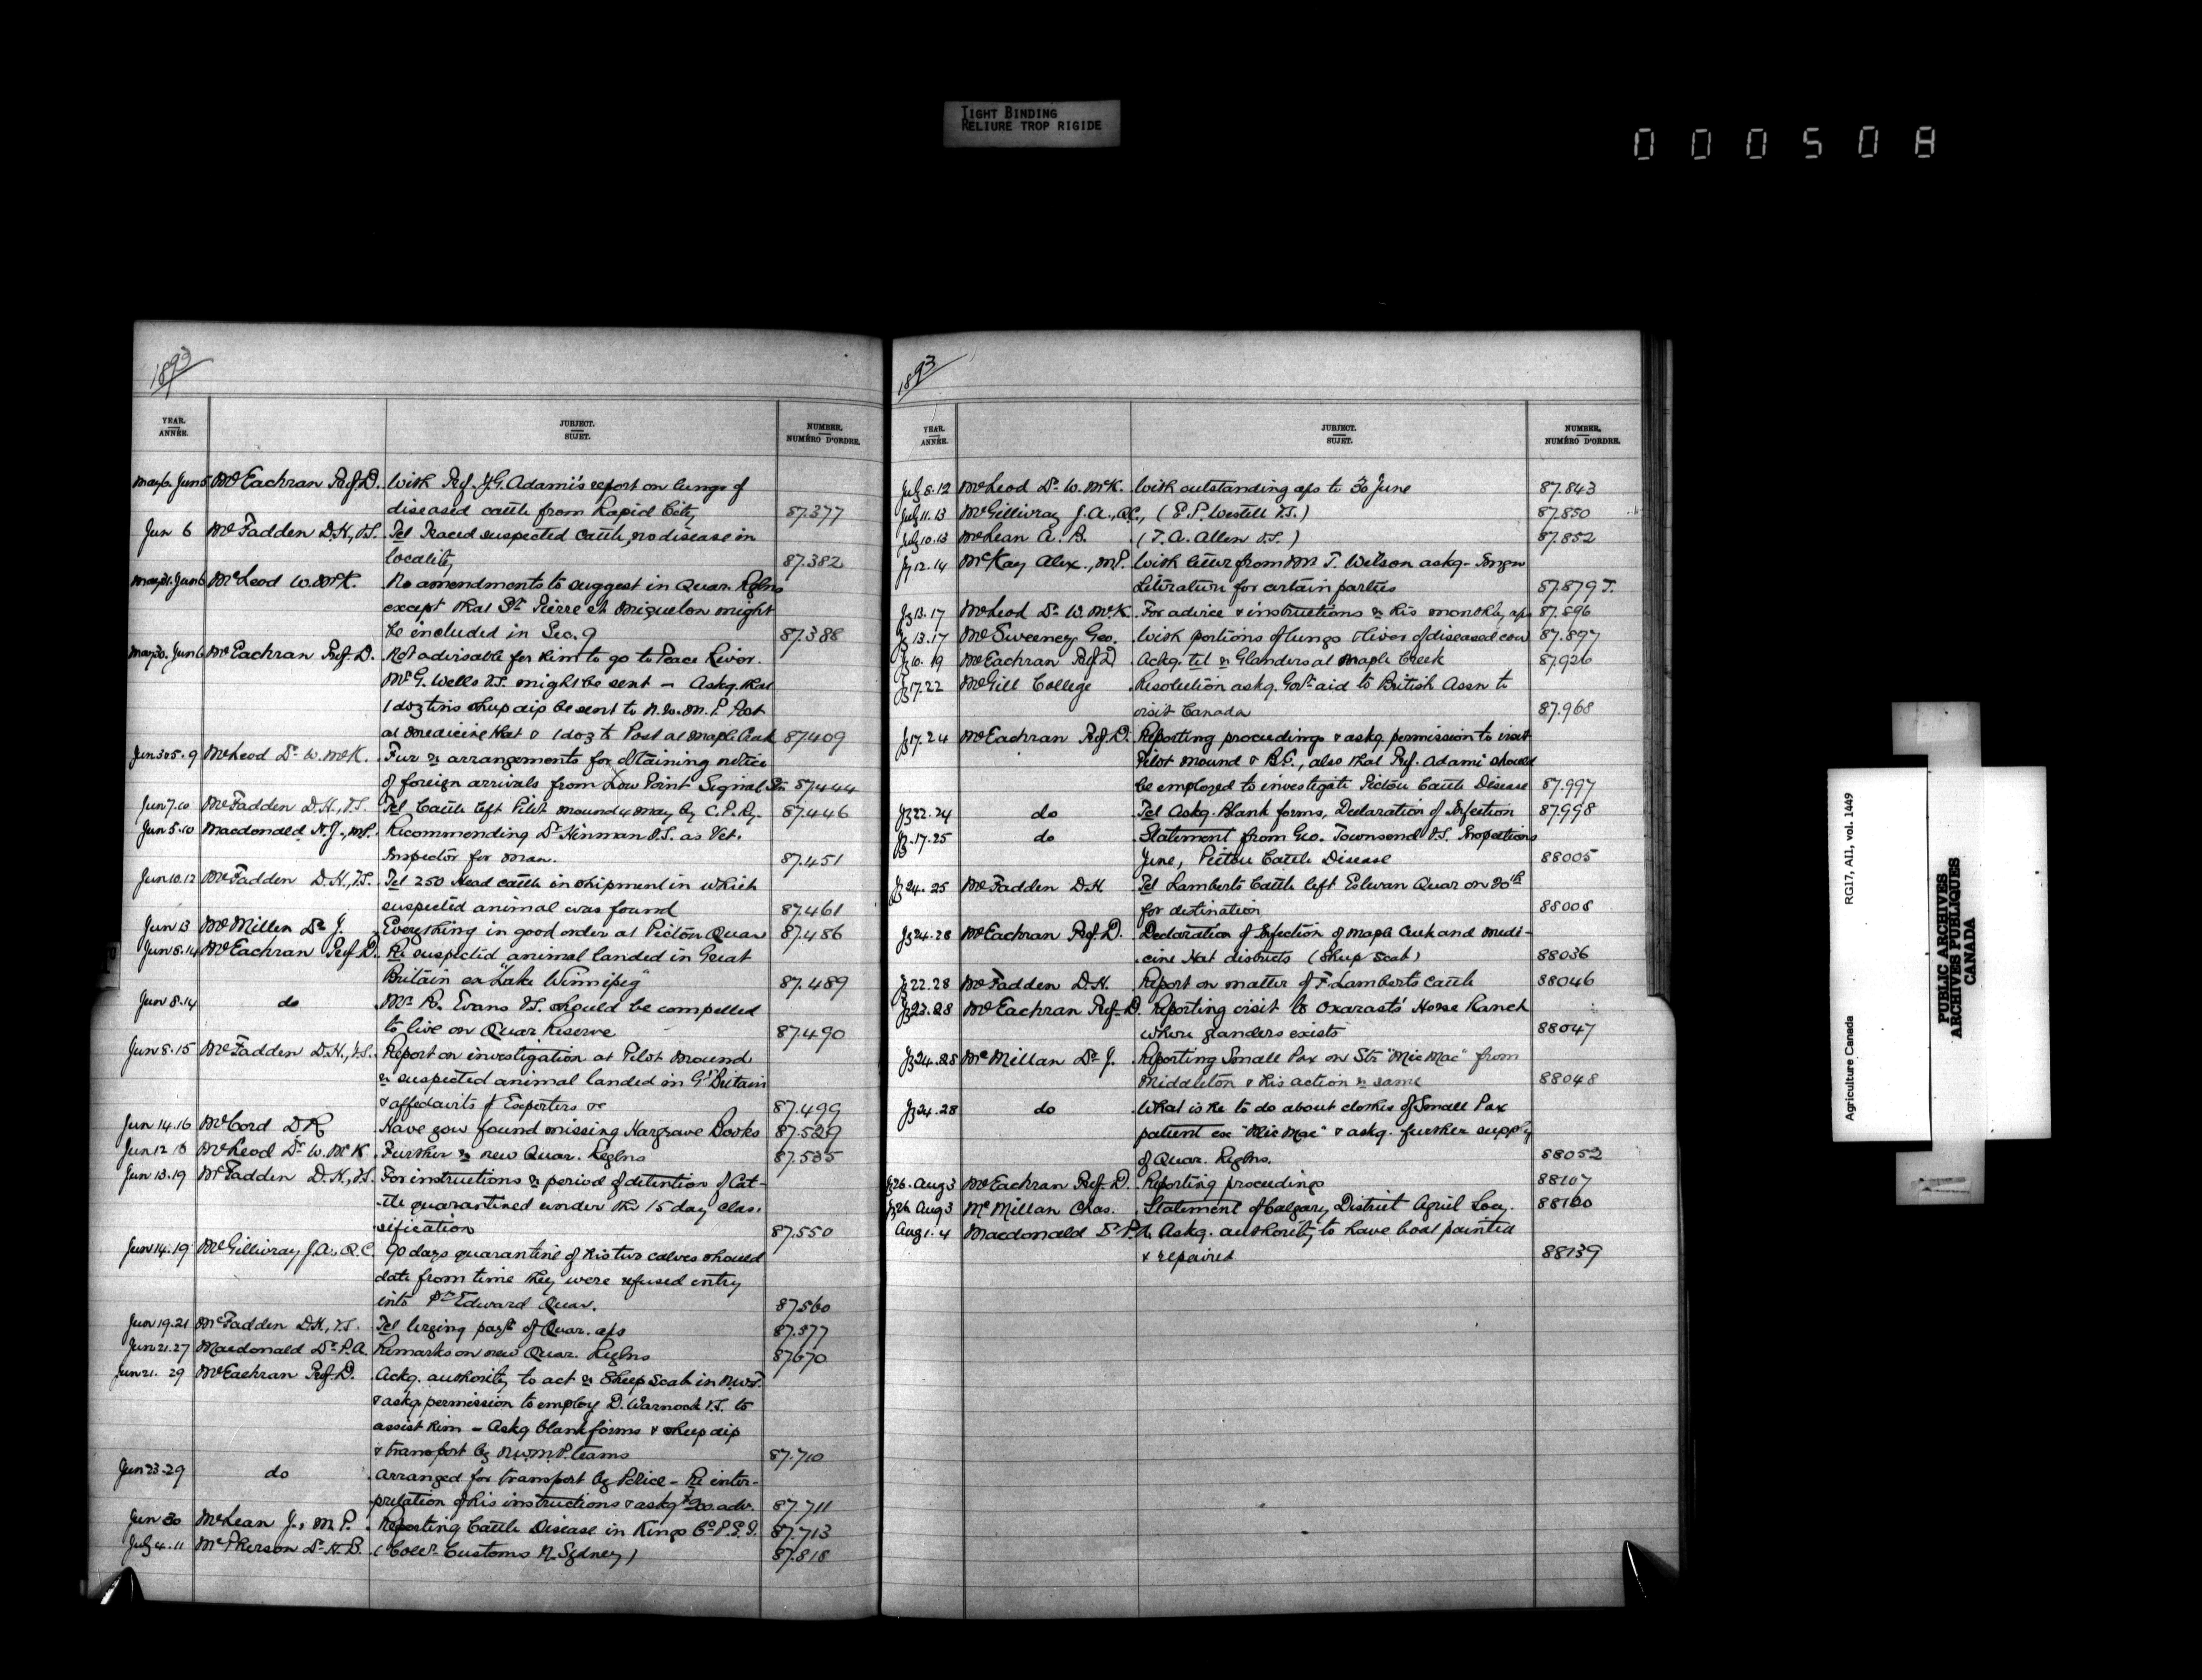 TIGHT BINDING
RELIURE TROP RIGIDE
000508
1893
YEAR.
ANNÉE.
SUBJECT.
SUJET.
NUMBER.
NUMÉRO D'ORDRE.
May 6. Jun 5 McEachran Prof. D. With Prof. J.G. Adami's report on lungs of
diseased cattle from Rapid City 87.377
Jun 6 McFadden D.H., V.S. Tel Traced suspected cattle, no disease in
locality 87.382
May 31. Jun 6 McLeod W. McK. No amendments to suggest in Quar. Reglns
except that St. Pierre et Miquelon might
be included in Sec. 9 87.388
May 30. Jun 6 McEachran Prof. D. Not advisable for him to go to Peace River.
Mr G. Wells V.S. might be sent – Askg. that
1 doz tins sheep dip be sent to N.W.M.P. Post
at Medicine Hat & 1 doz to Post at Maple Creek 87.409
Jun 3 & 5. 9 McLeod Dr W. McK. Fur re arrangements for obtaining notice
of foreign arrivals from Low Point Signal Stn 87.444
Jun 7. 10 McFadden D.H., V.S. Tel Cattle left Pilot Mound 4 May by C.P.Ry. 87.446
Jun 5. 10 Macdonald N.J., M.P. Recommending Dr Hinman V.S. as Vet.
Inspector for Man. 87.451
Jun 10. 12 McFadden D.H., V.S. Tel 250 Head cattle in shipment in which
suspected animal was found 87.461
Jun 13 McMillen Dr J. Everything in good order at Picton Quar 87.486
Jun 8. 14 McEachran Prof. D. Re suspected animal landed in Great
Britain ex "Lake Winnipeg" 87.489
Jun 8. 14 do Mr R. Evans V.S. should be compelled
to live on Quar Reserve 87.490
Jun 8. 15 McFadden D.H., V.S. Report on investigation at Pilot Mound
re suspected animal landed in Gt Britain
& affedavits of Exporters &c 87.499
Jun 14. 16 McCord D R Have you found missing Hargrave Books 87.529
Jun 12 13 McLeod Dr W. McK. Further re new Quar. Reglns 87.535
Jun 13. 19 McFadden D.H., V.S. For instructions re period of detention of Cat-
-tle quarantined under the 15 day clas-
sification 87.550
Jun 14. 19 McGillivray J.A., Q.C. 90 days quarantine of his two calves should
date from time they were refused entry
into Pt Edward Quar. 87.560
Jun 19. 21 McFadden D.H., V.S. Tel Urging paymt of Quar. a/cs 87.577
Jun 21. 27 Macdonald Dr P.A. Remarks on new Quar. Reglns 87670
Jun 21. 29 McEachran Prof. D. Ackg. authority to act re Sheep Scab in N.W.T.
& askg permission to employ D. Warnock V.S. to
assist him – Askg blank forms & sheep dip
& transport by N.W.M.P. teams 87.710
Jun 23. 29 do Arranged for transport by Police – Re inter-
pretation of his instructions & askg $200. adv. 87.711
Jun 30 McLean J., M.P. Reporting Cattle Disease in Kings Co P.E.I. 87.713
July 4. 11 McPherson Dr H.B. (Coler Customs N. Sydney) 87.818
1893
YEAR.
ANNÉE.
SUBJECT.
SUJET.
NUMBER.
NUMÉRO D'ORDRE.
July 8. 12 McLeod Dr W. McK. With outstanding a/cs to 30 June 87.843
July 11. 13 McGillivray J.A., Q.C., (E.P. Westell V.S.) 87.850
July 10. 13 McLean A. A. (T.A. Allen V.S.) 87.852
Jy 12. 14 McKay Alex., M.P. With letter from Mr T. Wilson askg. Immgn
Literature for certain parties 87.879 T.
Jy 13. 17 McLeod Dr W. McK. For advice & instructions re his monthly a/cs 87.896
Jy 13. 17 McSweeney Geo. With portions of lungs & liver of diseased cow 87.897
Jy 10. 19 McEachran Prof D Ackg. tel re Glanders at Maple Creek 87.926
Jy 17. 22 McGill College Resolution askg. Govt aid to British Assn to
visit Canada 87.968
Jy 17. 24 McEachran Prof. D. Reporting proceedings & askg. permission to visit
Pilot Mound & B.C., also that Prof. Adami should
be employed to investigate Pictou Cattle Disease 87.997
Jy 22. 24 do Tel Askg. Blank forms, Declaration of Infection 87.998
Jy. 17. 25 do Statement from Geo. Townsend V.S. Inspections
June, Pictou Cattle Disease 88005
Jy 24. 25 McFadden D.H. Tel Lamberts Cattle left Estevan Quar on 20th
for destination 88008
Jy 24. 28 McEachran Prof. D. Declaration of Infection of Maple Creek and Medi-
-cine Hat districts (Sheep Scab) 88036
Jy 22. 28 McFadden D.H. Report on matter of F. Lamberts Cattle 88046
Jy 23. 28 McEachran Prof. D. Reporting visit to Oxarasts' Horse Ranch
where glanders exists 88047
Jy 24. 28 McMillan Dr J. Reporting Small Pox on Str "Mic Mac" from
Middleton & his action re same 88048
Jy 24. 28 do What is he to do about clothes of Small Pox
patient ex "Mic Mac" & askg. further supply
of Quar. Reglns. 88052
Jy 26. Aug 3 McEachran Prof. D. Reporting proceedings 88107
Jy 26 Aug 3 McMillan Chas. Statement of Calgary District Agricl Socy. 88120
Aug 1. 4 Macdonald Dr P.A. Askg. authority to have boat painted
& repaired 88139
Agriculture Canada RG17, AII, vol. 1449
PUBLIC ARCHIVES
ARCHIVES PUBLIQUES
CANADA